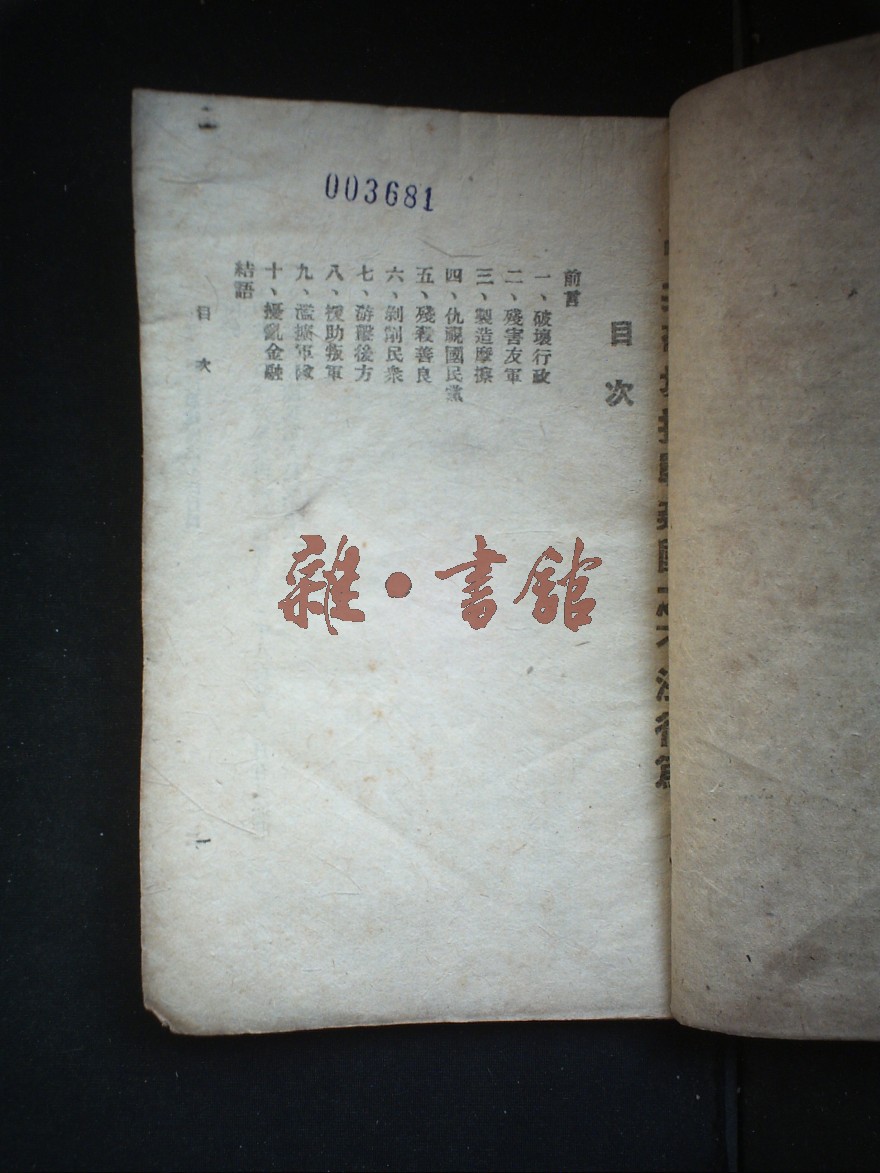 003681
目次
前言
一、破壞行政
二、殘害友軍
三、製造摩擦
四、仇視國民黨
五、殘殺善良
六、剝削民衆
七、游擊後方
八、援助叛軍
九、濫擴軍隊
十、擾亂金融
結語
目次
一
雜·書館